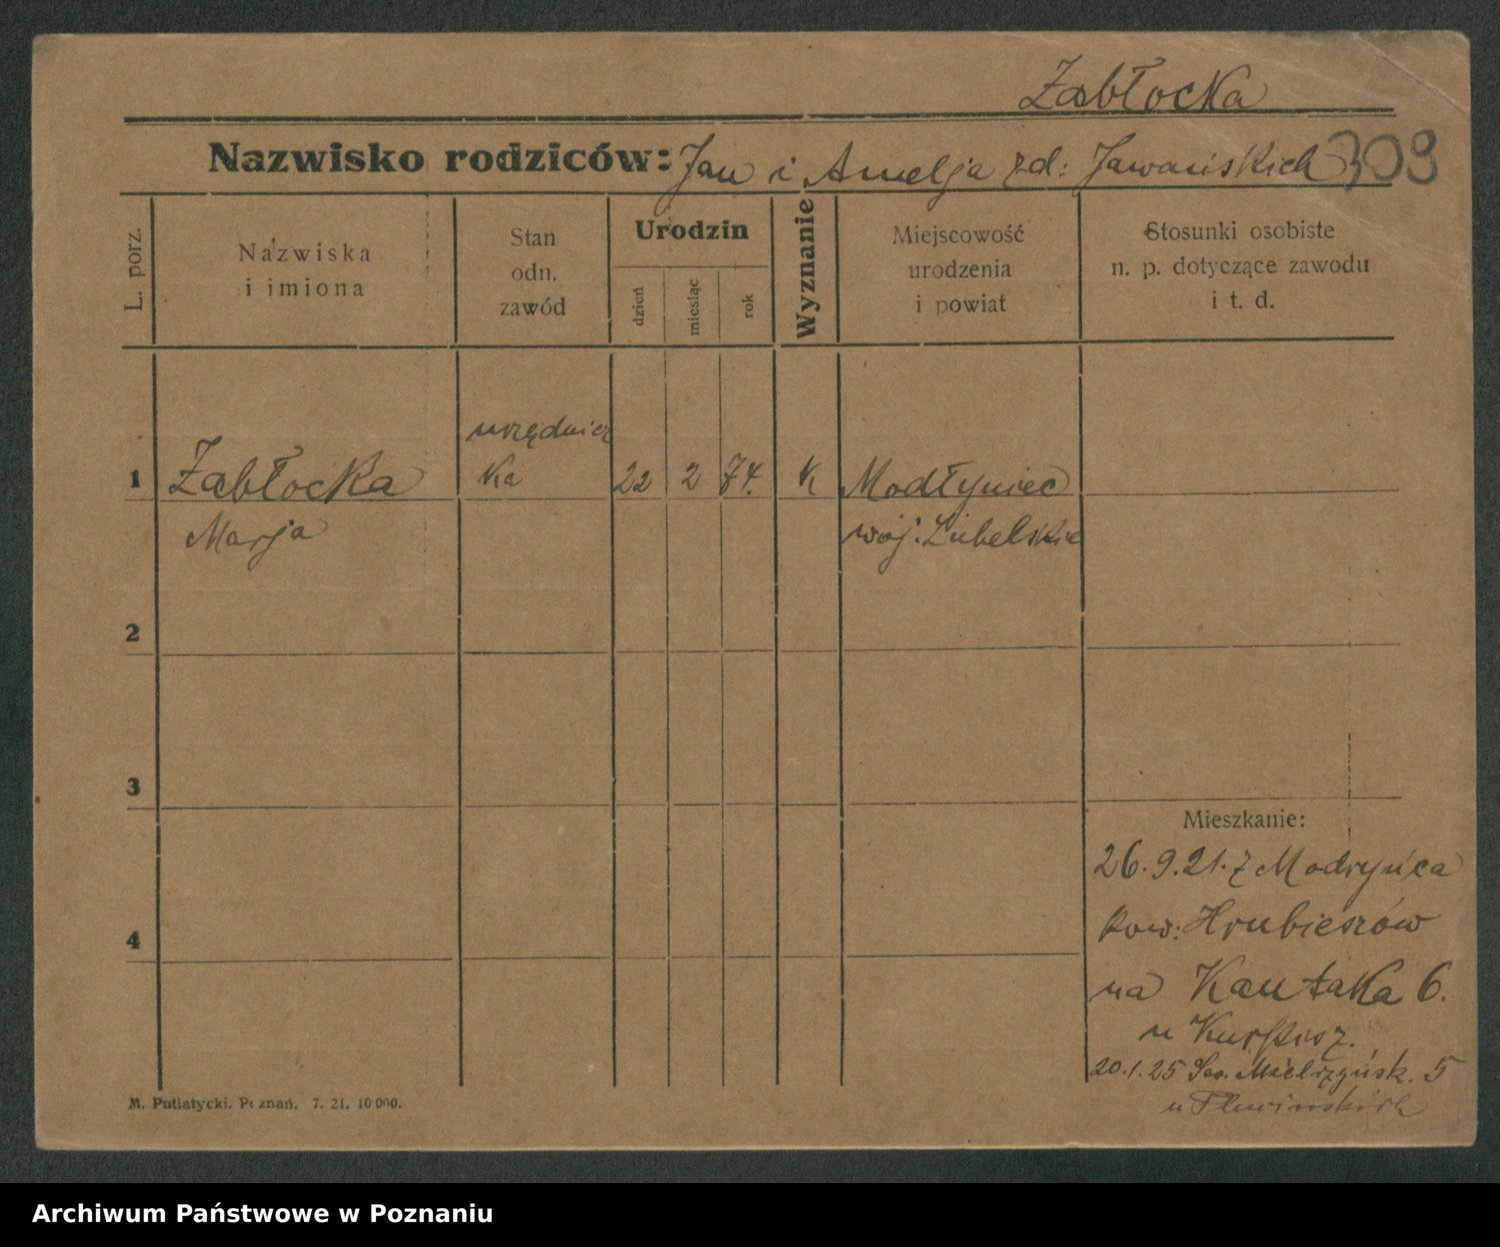 Zabłocka
Nazwisko rodziców: Jan i Amelja zd: Jawańskich 309
L. porz.
Nazwiska
i imiona
Stan
odn.
zawód
Urodzin
dzień
miesiąc
rok
Wyznanie
Miejscowość
urodzenia
i powiat
Stosunki osobiste
n. p. dotyczące zawodu
i t. d.
urzędnicz
1 Zabłocka ka 22 2 74. k Modłyniec
Marja woj: Lubelskie
2
3
Mieszkanie:
26.9.21. z Modryńca
pow: Hrubieszów
4
na Kantaka 6.
u
20.1.25 Sew. Mielżyńsk. 5
u
M. Putiatycki. Poznań. 7. 21. 10 000.
Archiwum Państwowe w Poznaniu